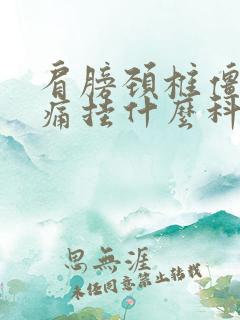 肩膀颈椎僵
痛挂什麽科
思無涯
未经同意禁止转载